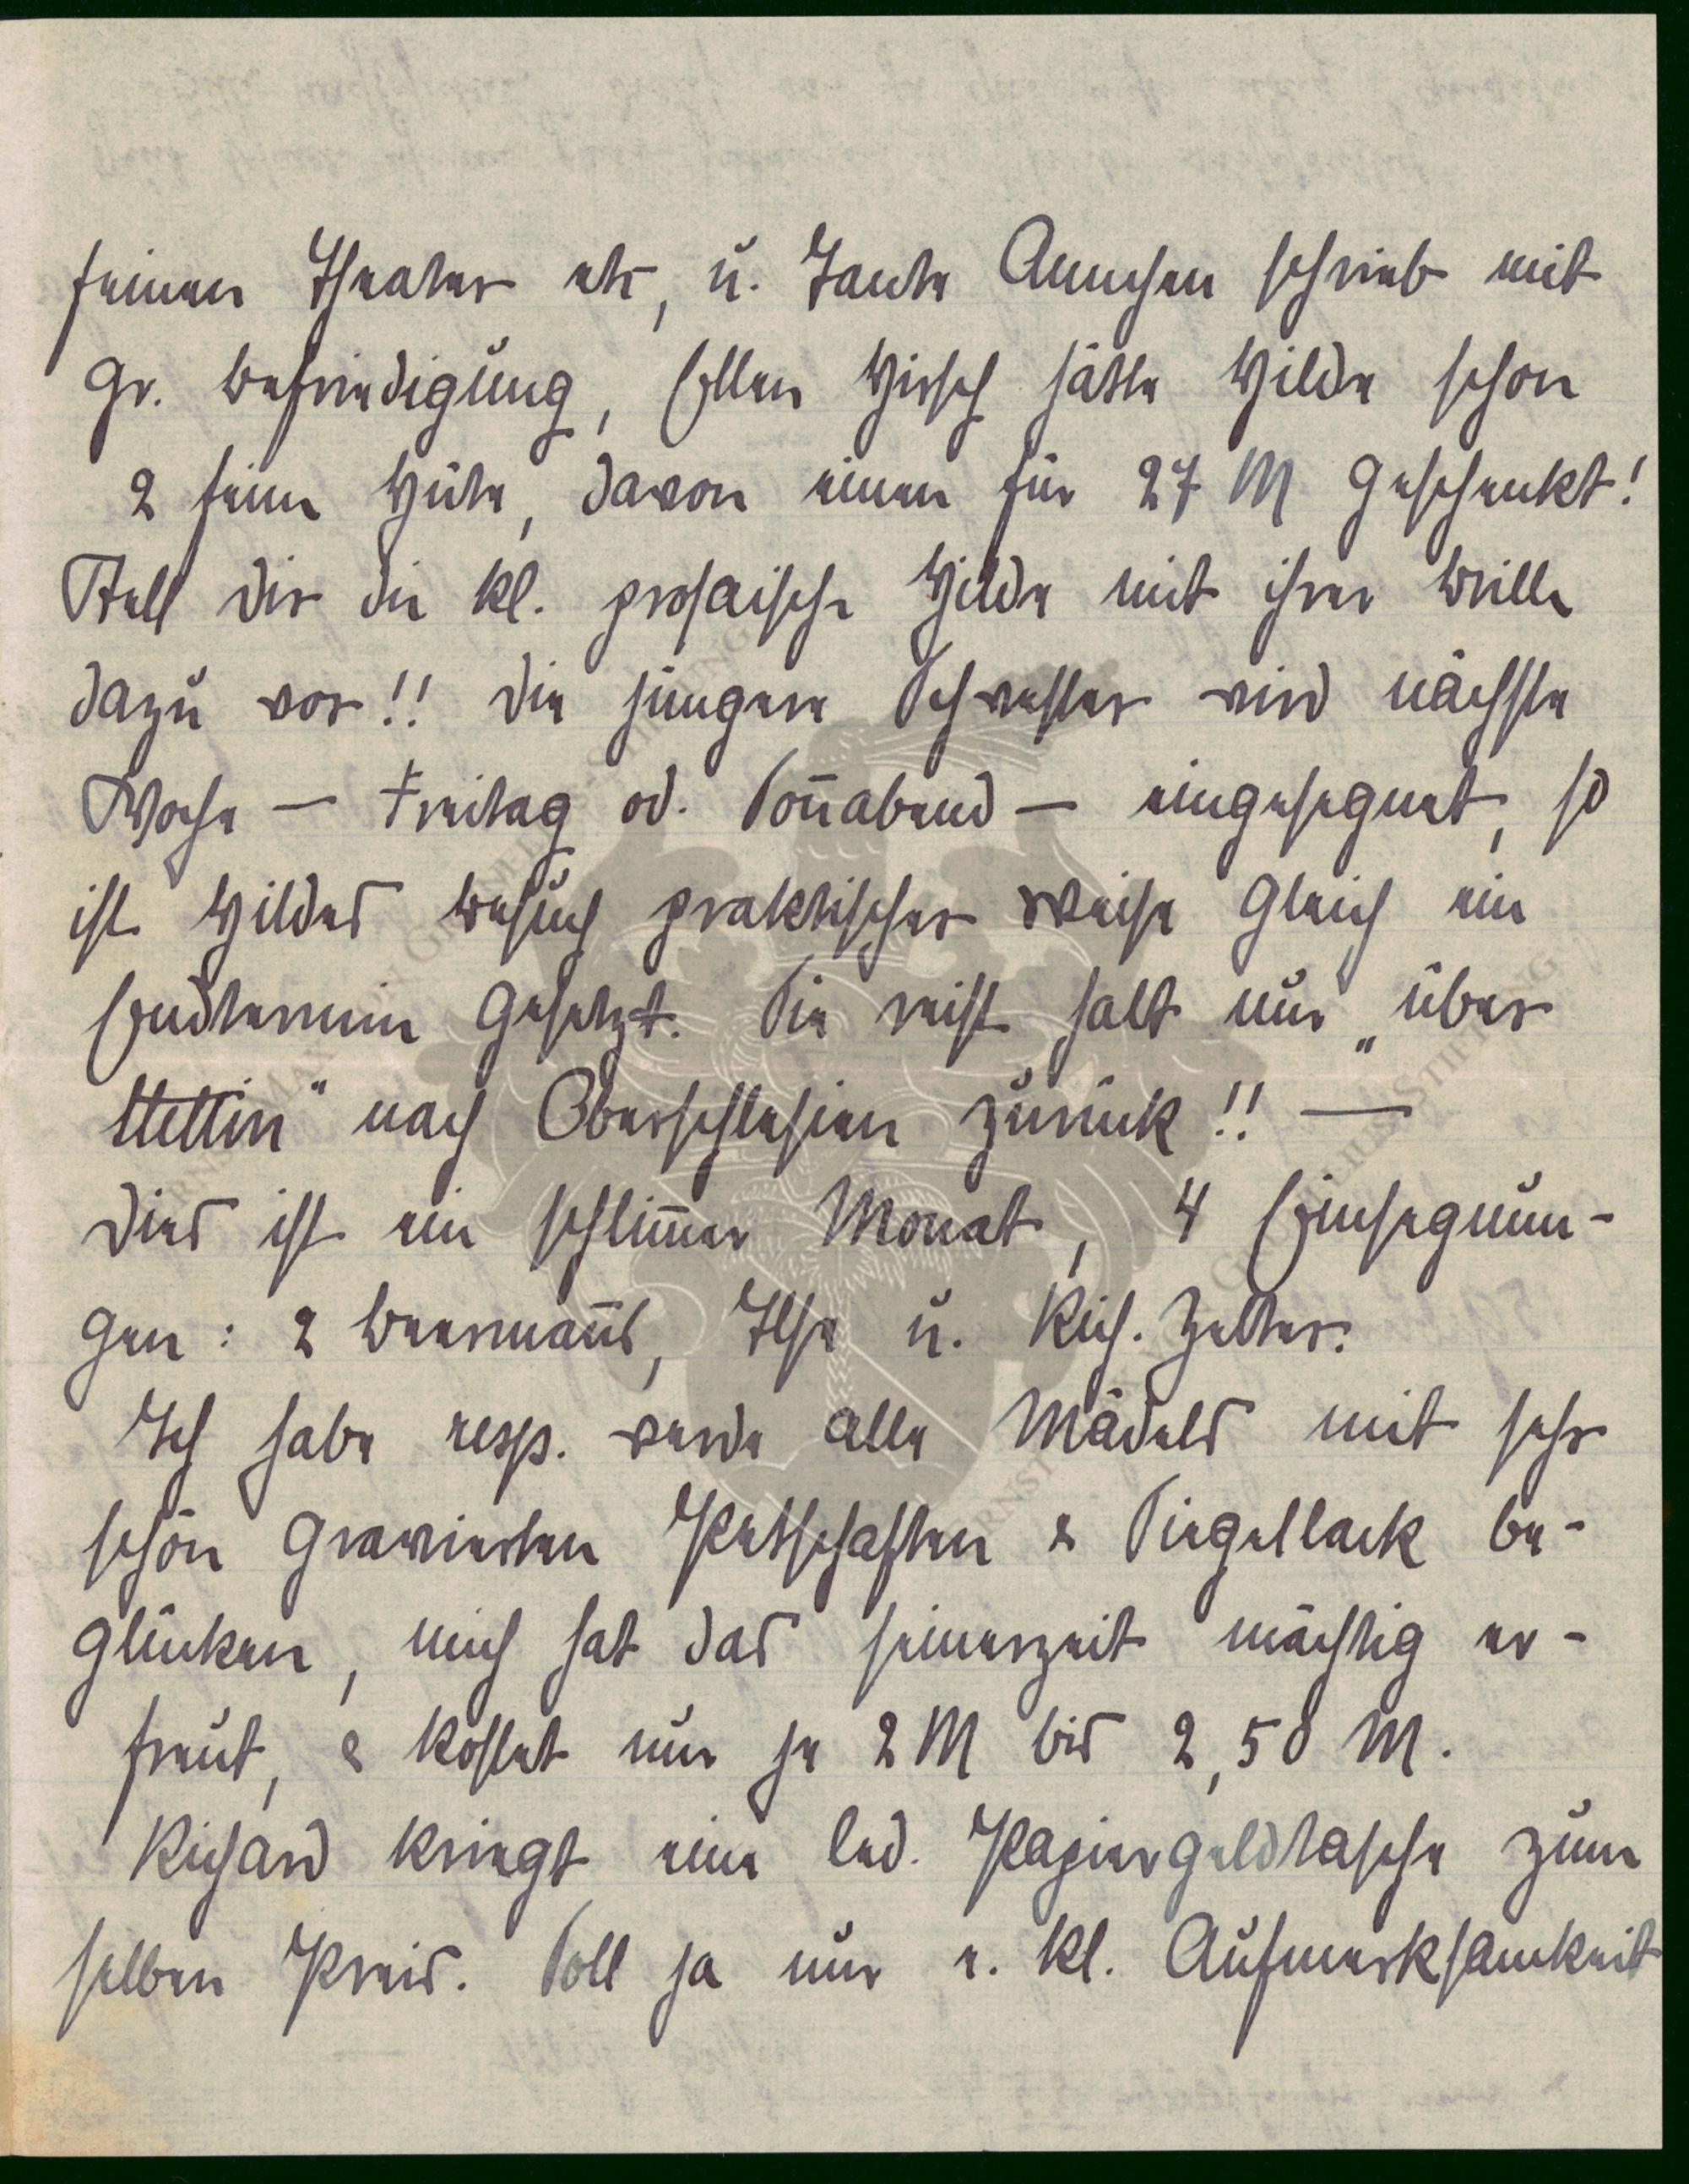 feinen Theater etc, u. Tante Annchen schrieb mit
gr. Befriedigung, Ellen Hirsch hätte Hilde schon
2 feine Hüte, davon einen für 27 M geschenkt!
Stell dir die kl. prosaische Hilde mit ihrer Brille
dazu vor!! Die jüngere Schwester wird nächste
Woche — Freitag od. Soñabend — eingesegnet, so
ist Hildes Besuch praktischer Weise gleich ein
Endtermin gesetzt. Sie reist halt nur „über
Stettin“ nach Oberschlesien zurück!! —
Dies ist ein schlim̄er Monat, 4 Einsegnun-
gen: 2 Beermañs, Ilse u. Rich. Zelter.
Ich habe resp. werde alle Mädels mit sehr
schön gravierten Petschaften & Siegellack be-
glücken, mich hat das seinerzeit mächtig er-
freut, & kostet nur je 2 M bis 2,50 M.
Richard kriegt eine led. Papiergeldtasche zum
selben Preis. Soll ja nur e. kl. Aufmerksamkeit